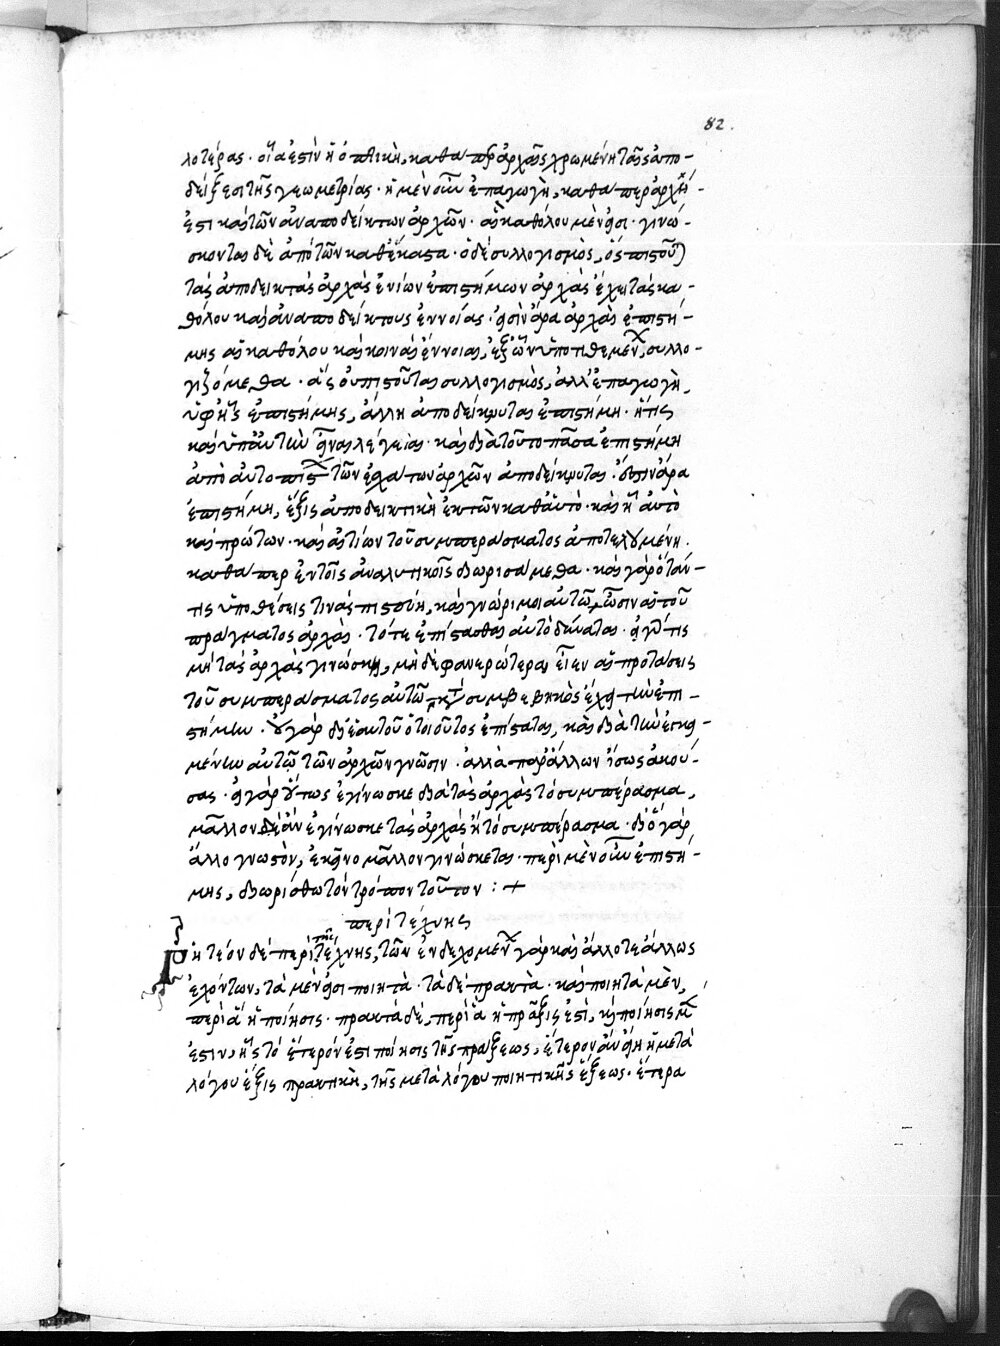 82.
λοτέρας· οἵα ἐστὶν ἡ ὀπτικὴ, καθάπερ ἀρχαῖς χρωμένη ταῖς ἀπο-
δείξεσι τῆς γεωμετρίας· ἡ μὲν οὖν ἐπαγωγὴ, καθάπερ ἀρχή
ἐστι καὶ τῶν ἀναποδείκτων ἀρχῶν· αἳ καθόλου μέν εἰσι· γινώ-
σκονται δὲ ἀπὸ τῶν καθέκαστα· ὁ δὲ συλλογισμὸς, ὃς πιστοῦ
τὰς ἀποδεικτὰς ἀρχὰς ἐνίων ἐπιστημῶν ἀρχὰς ἔχει τὰς κα-
θόλου καὶ ἀναποδείκτους ἐννοίας· εἰσὶν ἄρα ἀρχαὶ ἐπιστή-
μης αἱ καθόλου καὶ κοιναὶ ἔννοιαι, ἐξ ὧν ὑποτιθέμενοι συλλο-
γιζόμεθα· ἃς οὐ πιστοῦται συλλογισμὸς, ἀλλ' ἐπαγωγὴ,
ὑφ' ἧς ἐπιστήμης, ἄλλη ἀποδείκνυται ἐπιστήμη· ἥτις
καὶ ὑπ' αὐτὴν εἶναι λέγεται· καὶ διατοῦτο πᾶσα ἐπιστήμη
ἀπὸ αὐτοπίστων τῶν ἐσχάτων ἀρχῶν ἀποδείκνυται· ἔστιν ἄρα
ἐπιστήμη, ἕξις ἀποδεικτικὴ ἐκ τῶν καθ' αὑτὸ· καὶ ᾗ αὐτὸ
καὶ πρώτων· καὶ αἰτίων τοῦ συμπεράσματος ἀποτελουμένη.
καθάπερ ἐν τοῖς ἀναλυτικοῖς διωρισάμεθα· καὶ γὰρ ὅταν
τις ὑποθέσεις τινὰς πιστεύῃ, καὶ γνώριμοι αὐτῷ ὦσιν αἱ τοῦ
πράγματος ἀρχαὶ· τότε ἐπίστασθαι αὐτὸ δύναται· εἰ δέ τις
μὴ τὰς ἀρχὰς γινώσκῃ, μὴ δὲ φανερώτεραι εἶεν αἱ προτάσεις
τοῦ συμπεράσματος αὐτῷ, κατὰ συμβεβηκὸς ἔχει τὴν ἐπι-
στήμην· οὐ γὰρ δι' ἑαυτοῦ ὁ τοιοῦτος ἐπίσταται, καὶ διὰ τὴν ἐγκει-
μένην αὐτῷ τῶν ἀρχῶν γνῶσιν· ἀλλὰ παρ' ἄλλων ἴσως ἀκού-
σας· εἰ γὰρ οὕτως ἐγίνωσκε διὰ τὰς ἀρχὰς τὸ συμπέρασμα,
μᾶλλον δὴ ἂν ἐγίνωσκε τὰς ἀρχὰς ἢ τὸ συμπέρασμα· δι' ὃ γὰρ
ἄλλο γνωστὸν, ἐκεῖνο μᾶλλον γινώσκεται· περὶ μὲν οὖν ἐπιστή-
μης, διωρίσθω τὸν τρόπον τοῦτον : +
περὶ τέχνης
Ῥητέον δὲ περὶ τῆς τέχνης, τῶν ἐνδεχομένων γὰρ καὶ ἄλλοτε ἄλλως
ἐχόντων, τὰ μέν εἰσι ποιητὰ· τὰ δὲ πρακτὰ· καὶ ποιητὰ μὲν,
περὶ ἃ ἡ ποίησις· πρακτὰ δὲ, περὶ ἃ ἡ πρᾶξίς ἐστι, καὶ ποίησις μέν
ἐστιν, ᾗς τὸ ἕτερόν ἐστι ποίησις τῆς πράξεως, ἕτερον ἂν εἴη ἡ μετὰ
λόγου ἕξις πρακτικὴ, τῆς μετὰ λόγου ποιητικῆς ἕξεως· ἑτέρα